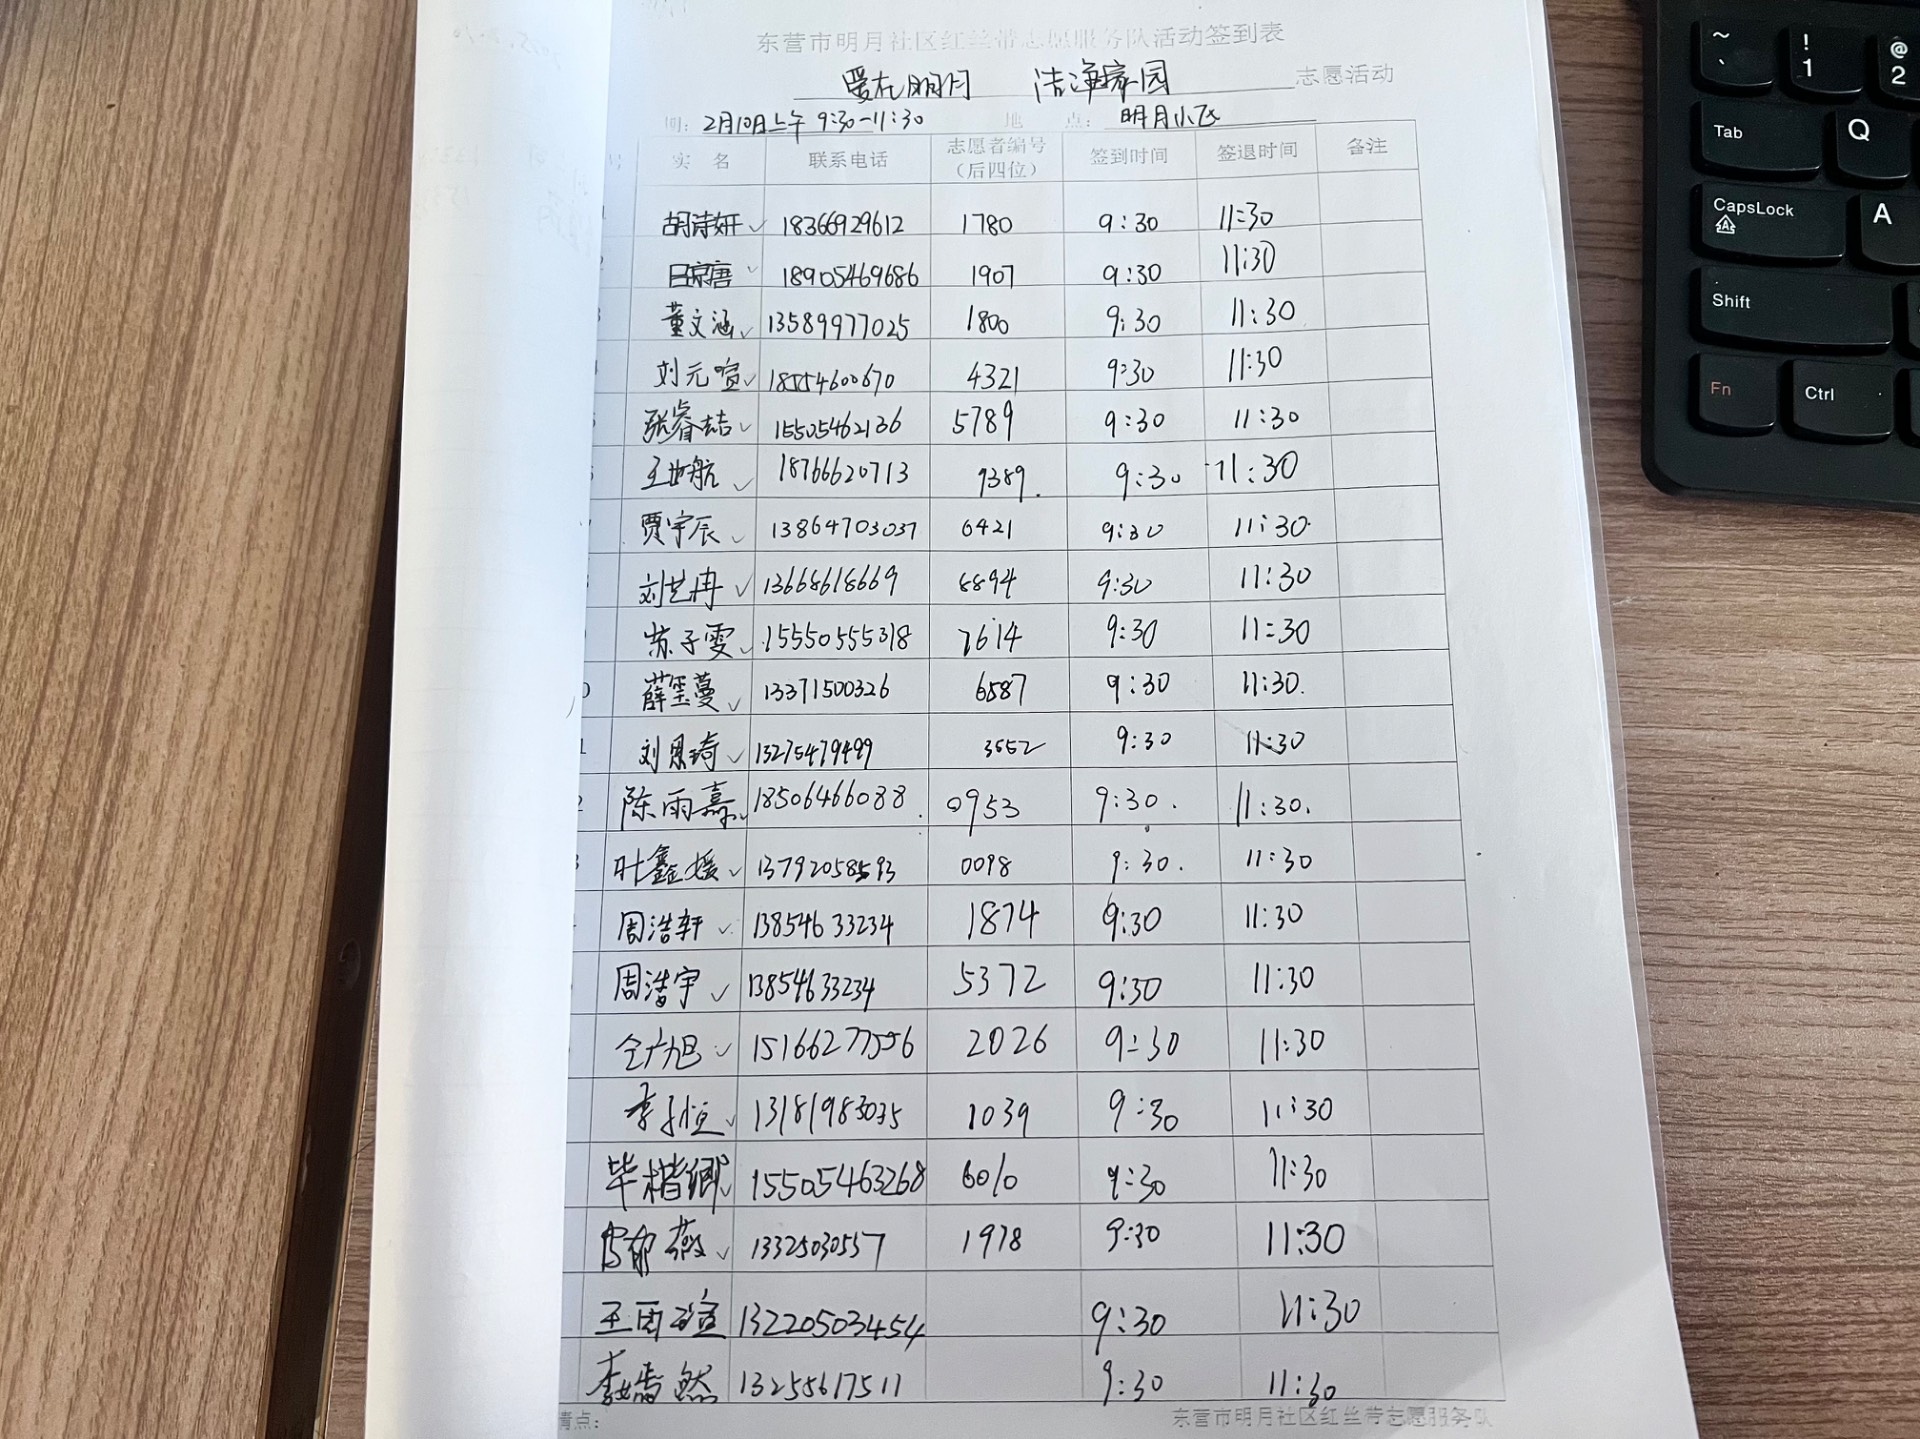 东营市明月社区红丝带志愿服务队活动签到表
爱在明月 洁净家园 志愿活动
间: 2月10日上午 9:30-11:30 地 点: 明月小区
号 实 名 联系电话 志愿者编号(后四位) 签到时间 签退时间 备注
胡诗妍 ✓ 18366929612 1780 9:30 11:30
✓ 18905469686 1907 9:30 11:30
董文涵 ✓ 13589977025 1800 9:30 11:30
刘元喧 ✓ 18554600670 4321 9:30 11:30
张睿喆 ✓ 15505462136 5789 9:30 11:30
王世航 ✓ 18766620713 9389. 9:30 11:30
贾宇辰 ✓ 13864703037 6421 9:30 11:30
刘艺冉 ✓ 13668618669 8894 9:30 11:30
苏子雯 ✓ 15550555318 7614 9:30 11:30
薛玺蔓 ✓ 13371500326 6587 9:30 11:30.
刘恩琦 ✓ 13275479499 3552 9:30 11:30
陈雨嘉 ✓ 18506466088. 0953 9:30. 11:30.
叶鑫媛 ✓ 13792058593 0098 9:30. 11:30
周浩轩 ✓ 13854633234 1874 9:30 11:30
周浩宇 ✓ 13854633234 5372 9:30 11:30
仝广旭 ✓ 15166277556 2026 9:30 11:30
李子恒 ✓ 13181983035 1039 9:30 11:30
毕楷卿 ✓ 15505463268 6010 9:30 11:30
薇 ✓ 13325030557 1978 9:30 11:30
王雨瑄 13220503454 9:30 11:30
李嫣然 13255617511 9:30 11:30
清点: 东营市明月社区红丝带志愿服务队
Tab
CapsLock
Shift
Fn
Ctrl
~ `
! 1
@ 2
Q
A